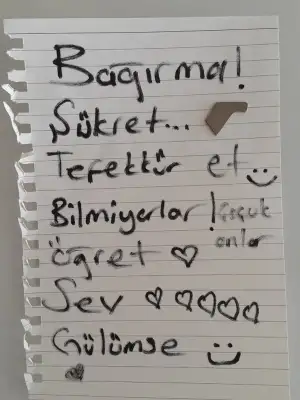 Bağırma!
Şükret...
Tefekkür et
Bilmiyorlar! Çocuk
onlar
Öğret ♡
Sev ♡ ♡ ♡ ♡ ♡
Gülümse